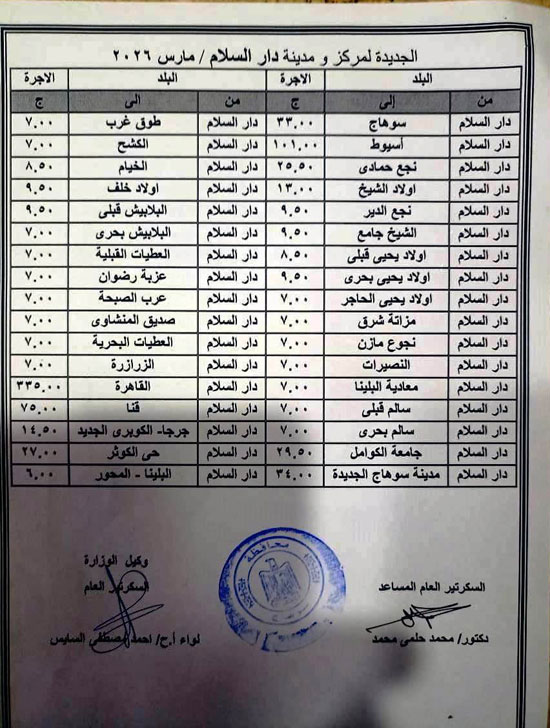 الجديدة لمركز و مدينة دار السلام / مارس ٢٠٢٦
البلد الاجرة البلد الاجرة
من إلى ج من الى ج
دار السلام سوهاج ٣٣.٠٠ دار السلام طوق غرب ٧.٠٠
دار السلام أسيوط ١٠١.٠٠ دار السلام الكشح ٧.٠٠
دار السلام نجع حمادى ٢٥.٥٠ دار السلام الخيام ٨.٥٠
دار السلام اولاد الشيخ ١٣.٠٠ دار السلام اولاد خلف ٩.٥٠
دار السلام نجع الدير ٩.٥٠ دار السلام البلابيش قبلى ٩.٥٠
دار السلام الشيخ جامع ٩.٥٠ دار السلام البلابيش بحرى ٧.٠٠
دار السلام اولاد يحيى قبلى ٨.٥٠ دار السلام العطيات القبلية ٧.٠٠
دار السلام اولاد يحيى بحرى ٩.٥٠ دار السلام عزبة رضوان ٧.٠٠
دار السلام اولاد يحيى الحاجر ٧.٠٠ دار السلام عرب الصبحة ٧.٠٠
دار السلام مزاتة شرق ٧.٠٠ دار السلام صديق المنشاوى ٧.٠٠
دار السلام نجوع مازن ٧.٠٠ دار السلام العطيات البحرية ٧.٠٠
دار السلام النصيرات ٧.٠٠ دار السلام الزرازرة ٧.٠٠
دار السلام معادية البلينا ٧.٠٠ دار السلام القاهرة ٣٣٥.٠٠
دار السلام سالم قبلى ٧.٠٠ دار السلام قنا ٧٥.٠٠
دار السلام سالم بحرى ٧.٠٠ دار السلام جرجا- الكوبرى الجديد ١٤.٥٠
دار السلام جامعة الكوامل ٢٩.٥٠ دار السلام حى الكوثر ٢٧.٠٠
دار السلام مدينة سوهاج الجديدة ٣٤.٠٠ دار السلام البلينا - المحور ٦.٠٠
محافظة
السكرتير العام المساعد
دكتور/ محمد حلمى محمد
وكيل الوزارة
السكرتير العام
لواء أ.ح/ احمد مصطفى السايس